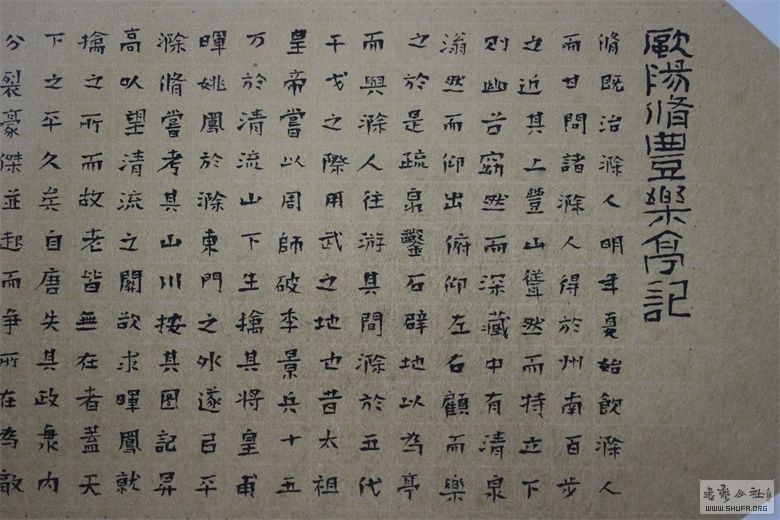 歐陽脩豐樂亭記
脩既治滁人明年夏始飲滁人
而甘問諸滁人得於州南百步
之近其上豐山聳然而特立下
則幽谷窈然而深藏中有清泉
滃然而仰出俯仰左右顧而樂
之於是疏泉鑿石辟地以為亭
而與滁人往游其間滁於五代
干戈之際用武之地也昔太祖
皇帝嘗以周師破李景兵十五
万於清流山下生擒其將皇甫
暉姚鳳於滁東門之外遂以平
滁脩嘗考其山川按其圖記昇
高以望清流之關欲求暉鳳就
擒之所而故老皆無在者蓋天
下之平久矣自唐失其政海內
分裂豪傑並起而爭所在為敵
書藝公社
WWW.SHUFA.ORG